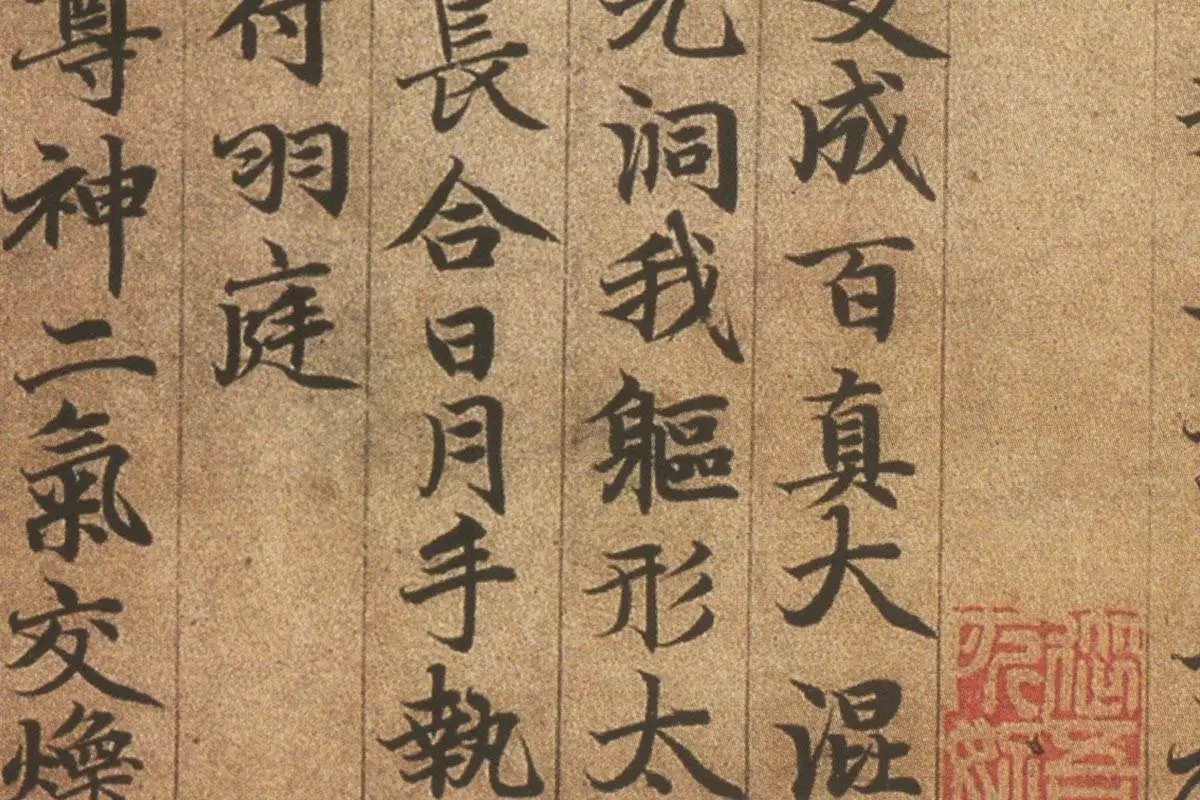 交成百真大混
光洞我軀形太
長合日月手執
符羽庭
尊神二氣交燥